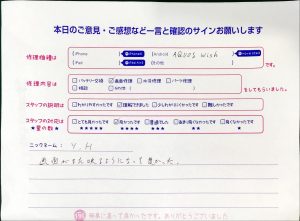 本日のご意見・ご感想など一言と確認のサインお願いします
修理機種は
iPhone
Android
AQUOS wish
iPad
その他
です。
修理内容は
バッテリー交換 画面修理 水没修理 パーツ修理
相談 その他
をしてもらいました。
スタッフの説明は
わかりやすかった 理解できました 少しわかりにくかった 難しかった
スタッフの対応は
とても良かった 良かった 普通でした あまり良くなかった 良くなかった
★星の数★
★★★★★ ★★★★ ★★★ ★★ ★
ニックネーム: Y.H
画面がまた映るようになって良かった。